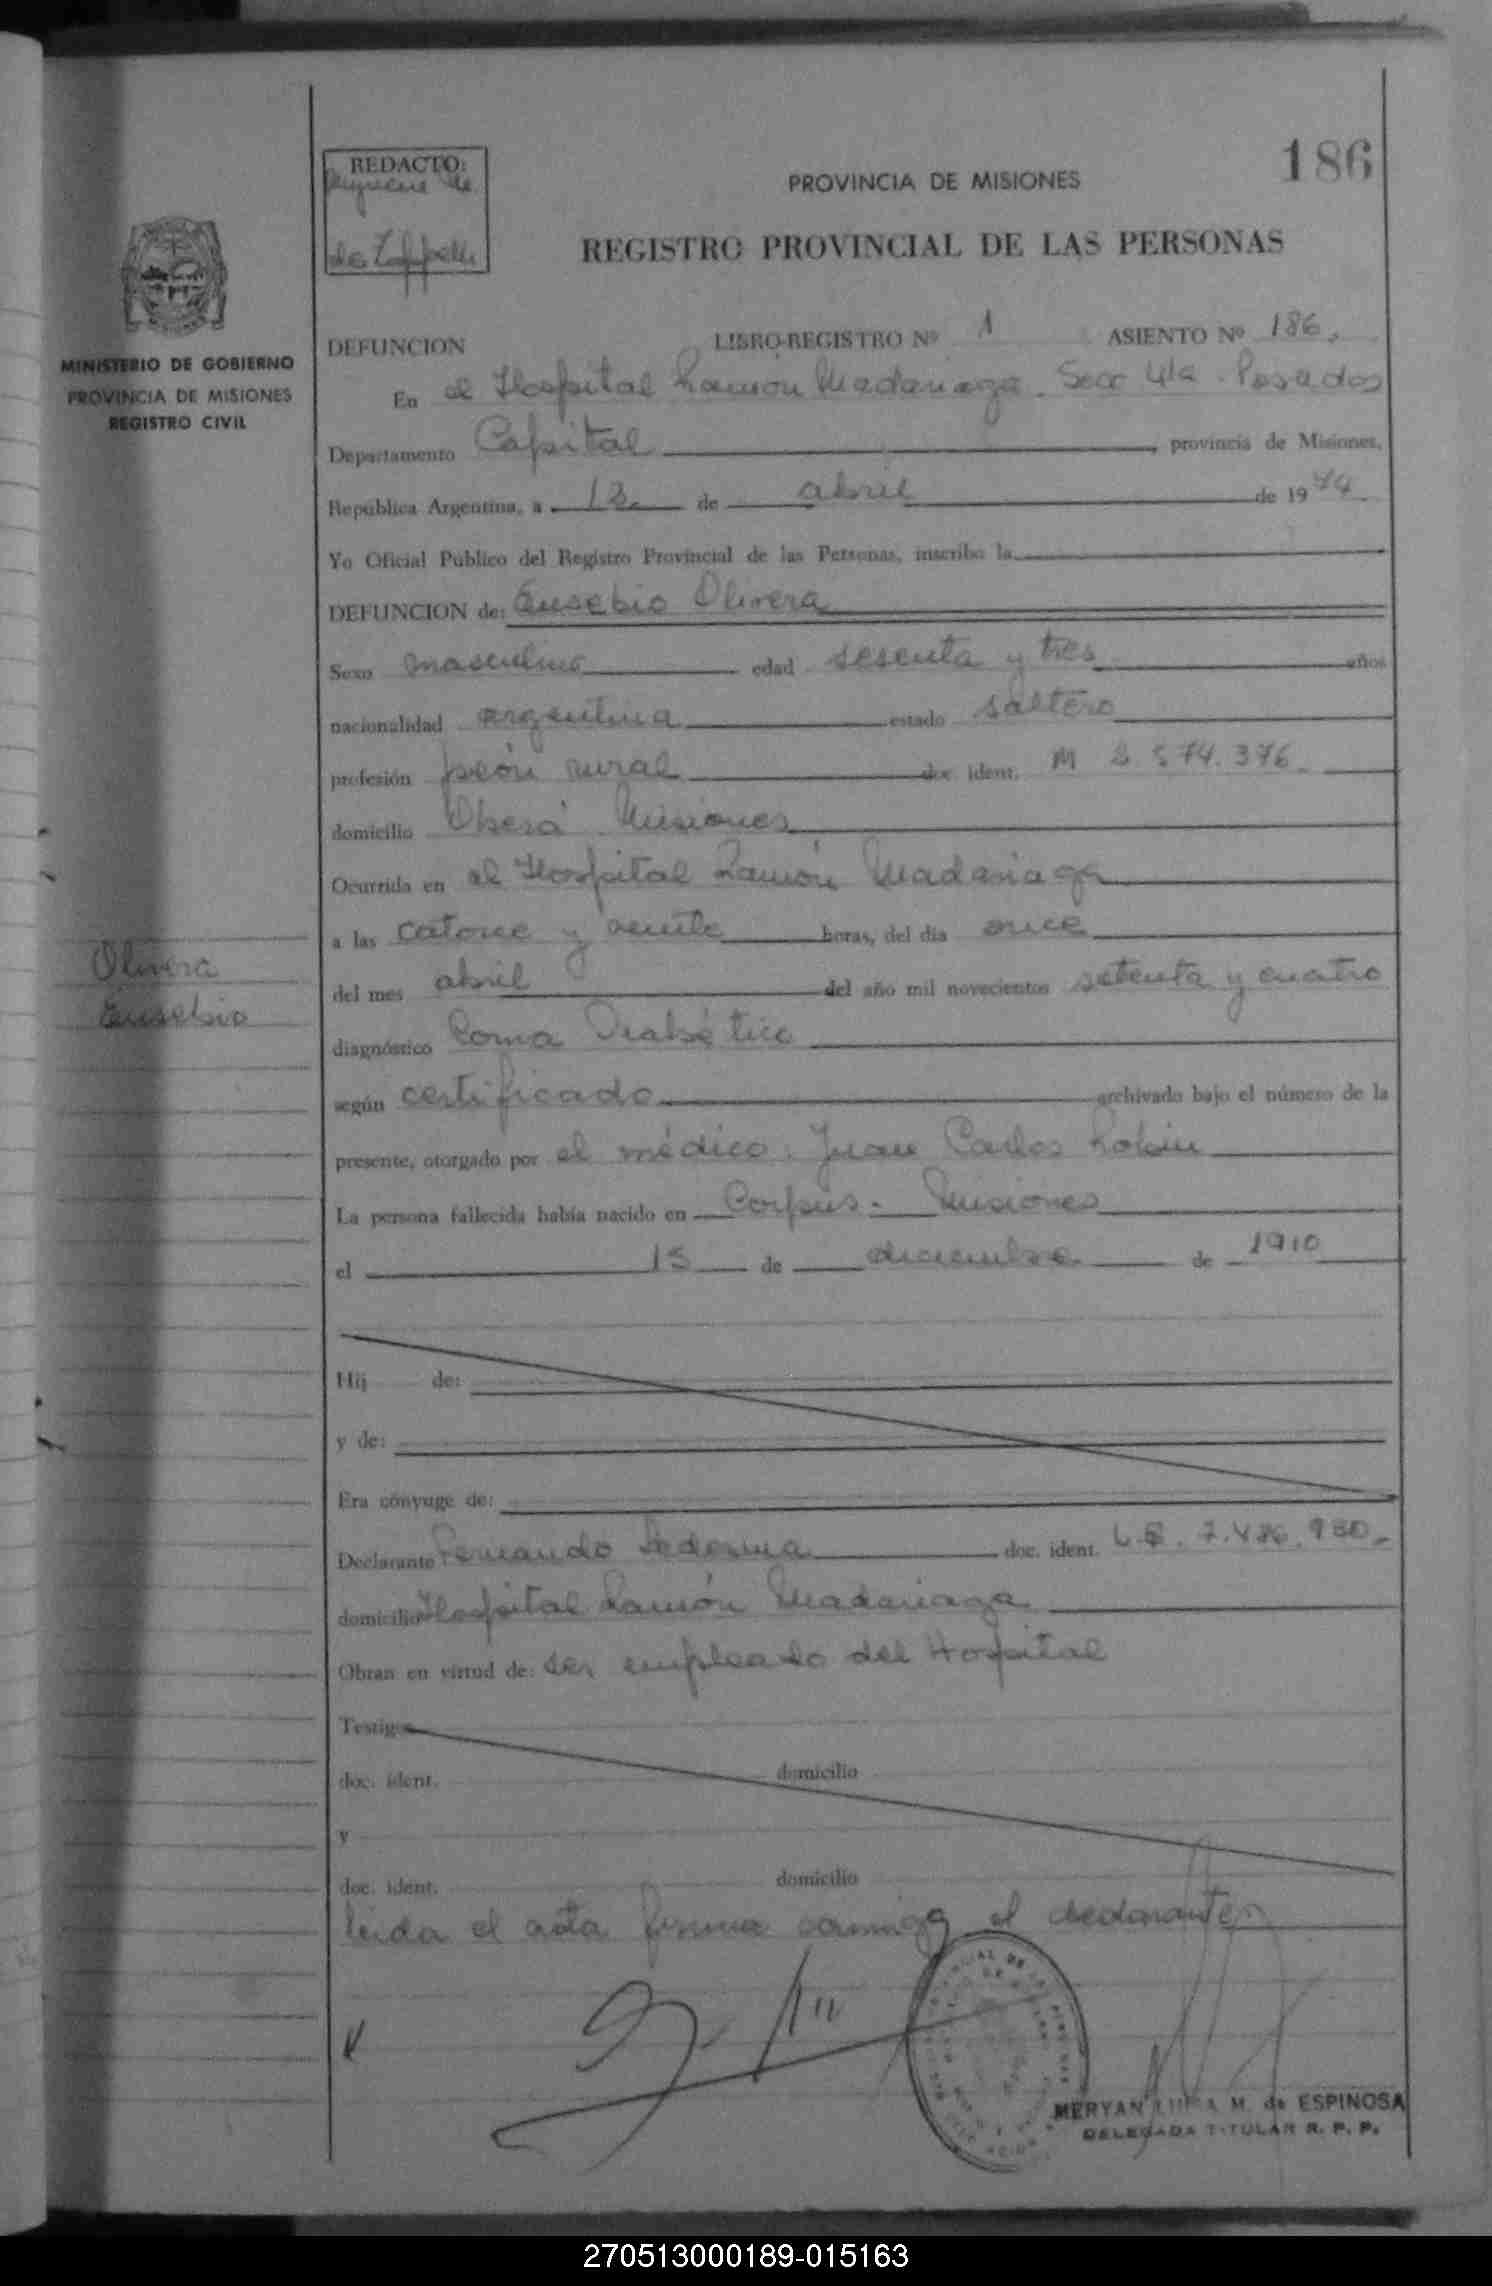 186
REDACTO:
de Zappelli
PROVINCIA DE MISIONES
REGISTRO PROVINCIAL DE LAS PERSONAS
MINISTERIO DE GOBIERNO
PROVINCIA DE MISIONES
REGISTRO CIVIL
DEFUNCION LIBRO-REGISTRO Nº 1 ASIENTO Nº 186.
En el Hospital Ramón Madariaga. Secc 4ta. Posadas
Departamento Capital provincia de Misiones,
República Argentina, a 12 de abril de 1974
Yo Oficial Público del Registro Provincial de las Personas, inscribo la
DEFUNCION de: Eusebio Olivera
Sexo masculino edad sesenta y tres años
nacionalidad argentina estado soltero
profesión peón rural doc. ident. M 2.574.376.
domicilio Oberá Misiones
Ocurrida en el Hospital Ramón Madariaga
a las catorce y veinte horas, del día once
del mes abril del año mil novecientos setenta y cuatro
Olivera
Eusebio
diagnóstico Coma Diabético
según certificado archivado bajo el número de la
presente, otorgado por el médico: Juan Carlos Robin
La persona fallecida había nacido en Corpus - Misiones
el 15 de diciembre de 1910
Hij de:
y de:
Era cónyuge de:
Declarante Fernando Ledesma doc. ident. L.E. 7.486.980.-
domicilio Hospital Ramón Madariaga
Obran en virtud de: ser empleado del Hospital
Testigos
doc. ident. domicilio
y
doc. ident. domicilio
leida el acta firma conmigo el declarante
MERYAN LUISA M. de ESPINOSA
DELEGADA TITULAR R. P. P.
270513000189-015163